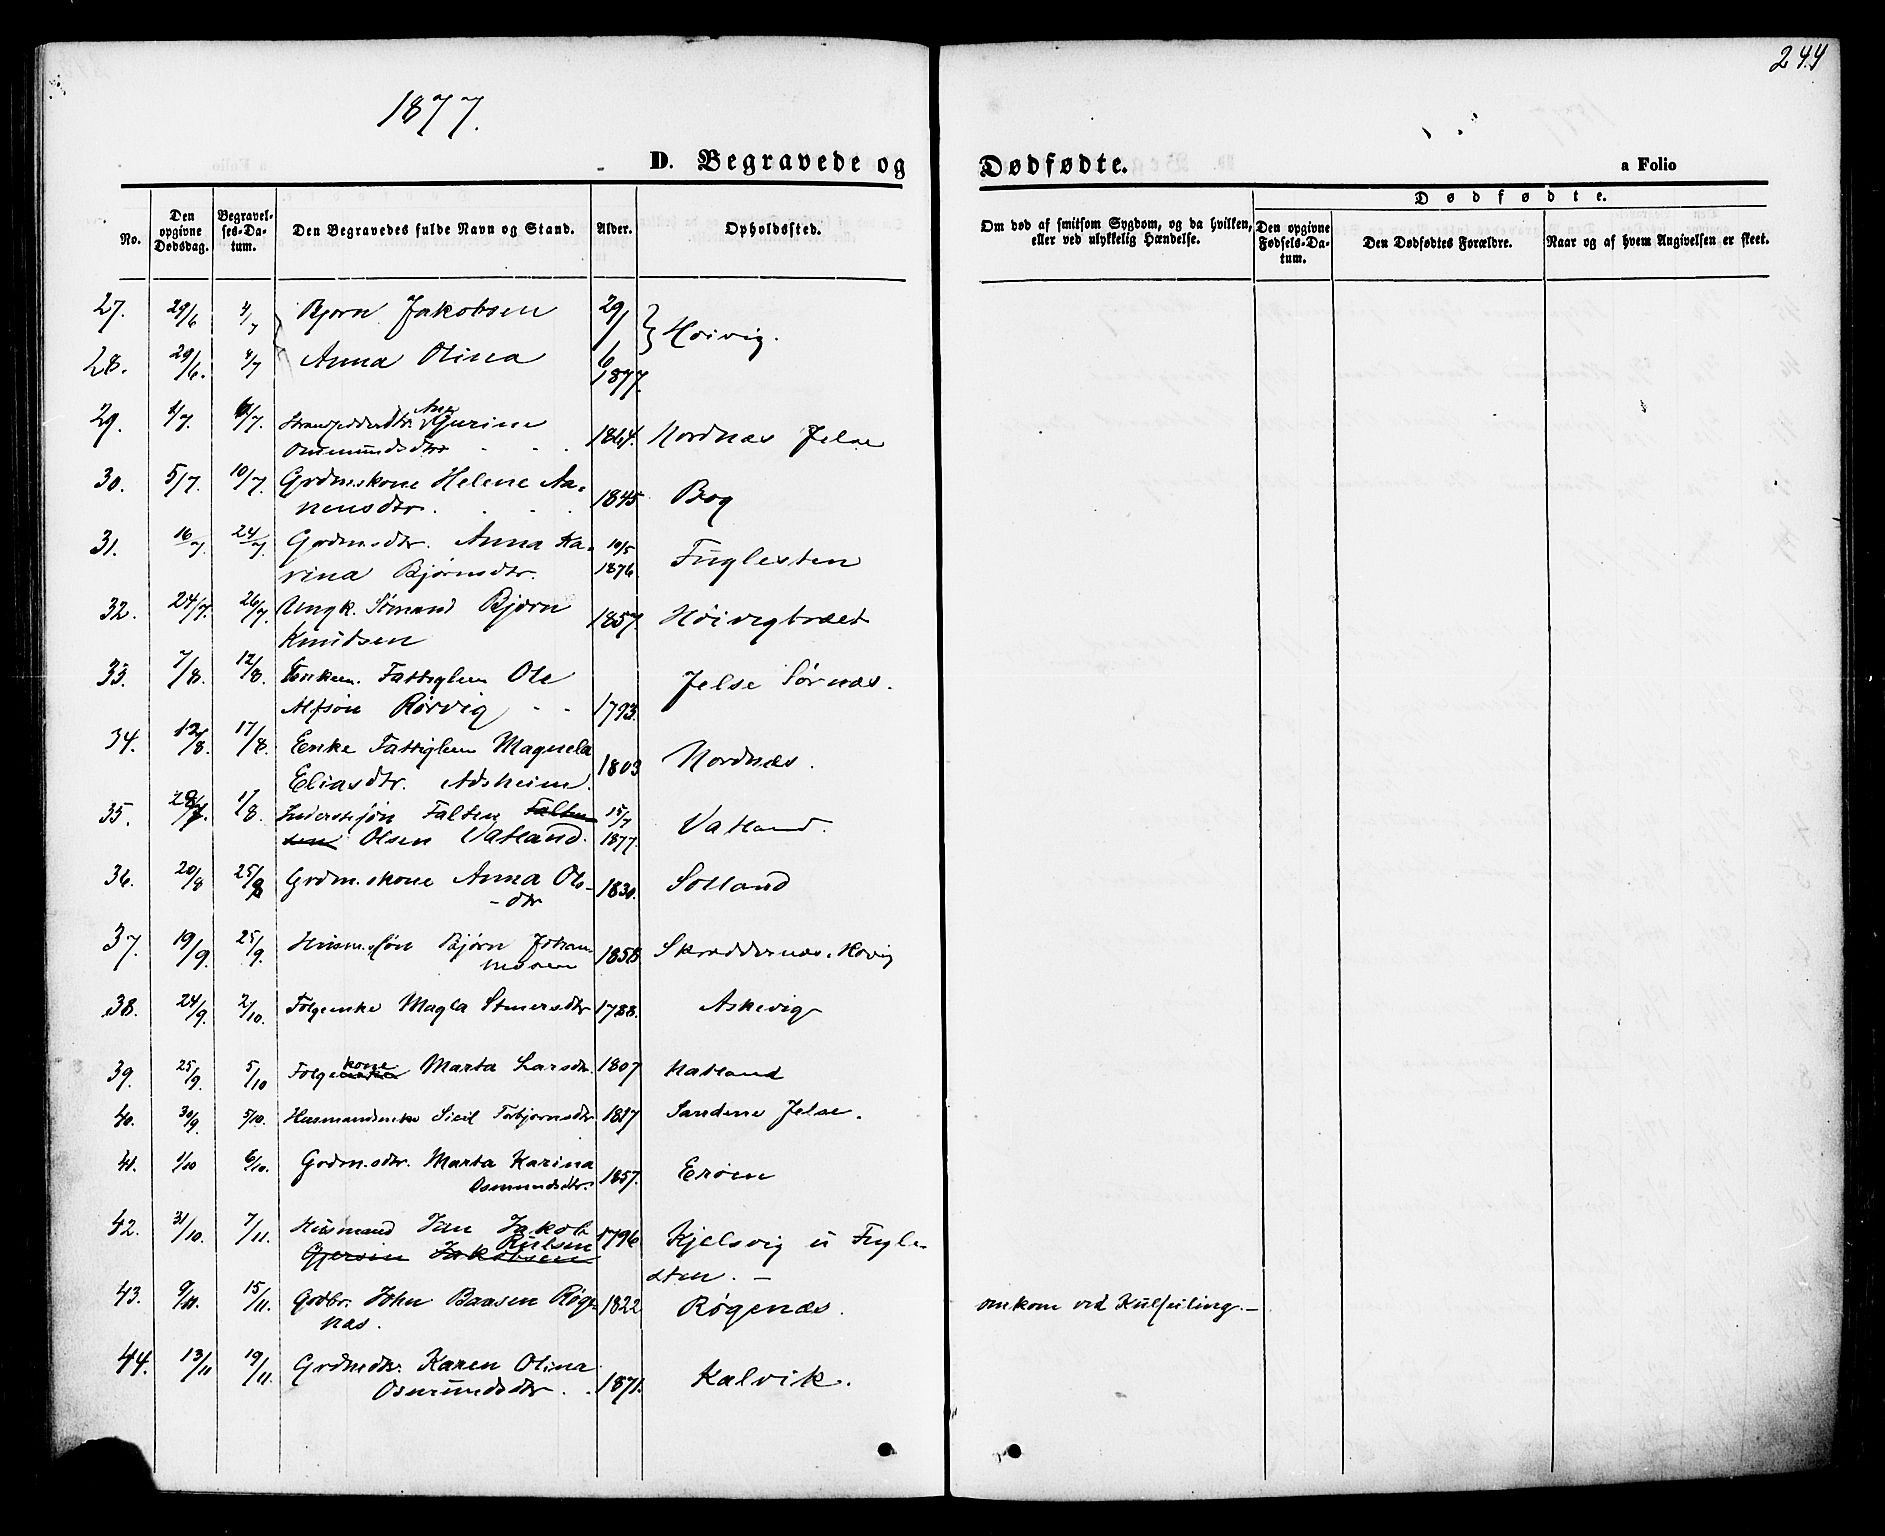 244
1877.
D. Begravede og Dødfødte.
a Folio
No.
Den opgivne Dødsdag.
Begravelses-Datum.
Den Begravedes fulde Navn og Stand.
Alder.
Opholdssted.
Om død af smitsom Sygdom, og da hvilken, eller ved ulykkelig Hændelse.
Dødfødte.
Den opgivne Fødsels-Datum.
Den Dødfødtes Forældre.
Naar og af hvem Angivelsen er skeet.
27. 29/6 4/7 Bjorn Jakobsen 29/6 1877. Høivig.
28. 29/6. 4/7 Anna Olina
29. 1/7. 6/7. Ane Gurine
Ommundsdtr 1864. Nordnæs Jelse
30. 5/7. 10/7. Grdmskone Helene Aa-
nensdtr. 1845 Bog
31. 16/7. 24/7. Grdmsdtr. Anna Ka- 10/5
rina Bjørnsdtr. 1876. Fuglesten
32. 24/7. 26/7. Ungk. Sømand Bjørn
Knudsen 1857. Høivigtræet
33. 7/8. 12/8. Enkem. Fattiglem Ole
Alfsøn Rørvig 1793. Jelse Sørnæs.
34. 12/8. 17/8. Enke Fattiglem Magnela
Eliasdtr. Adsheim. 1803 Nordnæs.
35. 1/8. Falten Falten 15/7
sen Olsen Vatland. 1877. Vatland.
36. 20/8 25/8 Grdm.skone Anna Ols-
-dtr 1830. Solland
37. 19/9. 25/9. Husm.søn Bjørn Johan
nesen 1858 Skræddernæs. Høvig
38. 24/9. 2/10. Folgenke Magla Stenersdtr 1788. Askevig
39. 25/9. 5/10 Folgekone Marta Larsdtr. 1807 Hatland
40. 30/9. 5/10. Husmandsenke Sicil Torbjornsdtr 1817 Sandene Jelse.
41. 1/10 6/10. Grdm.sdtr. Marta Karina
Osmundsdtr. 1857. Erøen
42. 31/10. 7/11. Husmand Jan Jakob
Rulsen
Gjersen Jakobsen 1796 Kjelsvig u Fugle-
sten.
43. 9/11. 15/11. Grdbr. John Baasen Røge-
næs. 1822 Røgenæs. omkom ved Kulseiling.
44. 13/11 19/11. Grdmdtr. Karen Olina
Osmundsdtr. 1871. Kalvik.